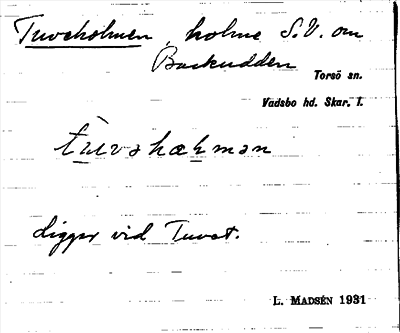 Tuveholmen, holme S.V. om
Backudden
Torsö sn.
Vadsbo hd. Skar. l.
ligger vid Tuvet.
L. MADSÉN 1931